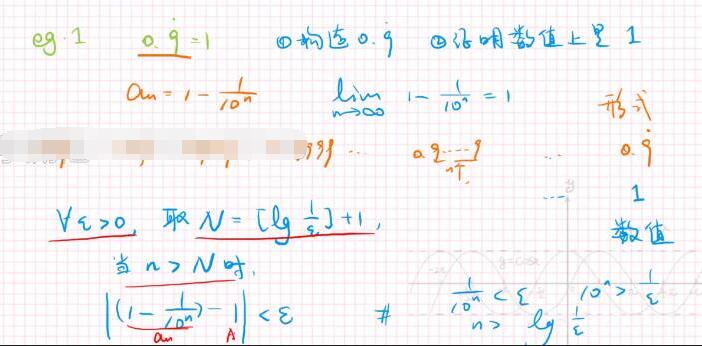 eg.1 0.9̇=1 ①构造0.9̇ ②证明数值上是1
aₙ = 1 - 1/10ⁿ lim n→∞ 1 - 1/10ⁿ = 1 形式
999 … 0.9……9 n个 … 0.9̇
… 1
∀ε>0, 取 N = [lg 1/ε]+1, 数值
当 n>N 时,
|(1 - 1/10ⁿ) - 1| < ε # 1/10ⁿ < ε 10ⁿ > 1/ε
aₙ A n > lg 1/ε
y=cosx
y